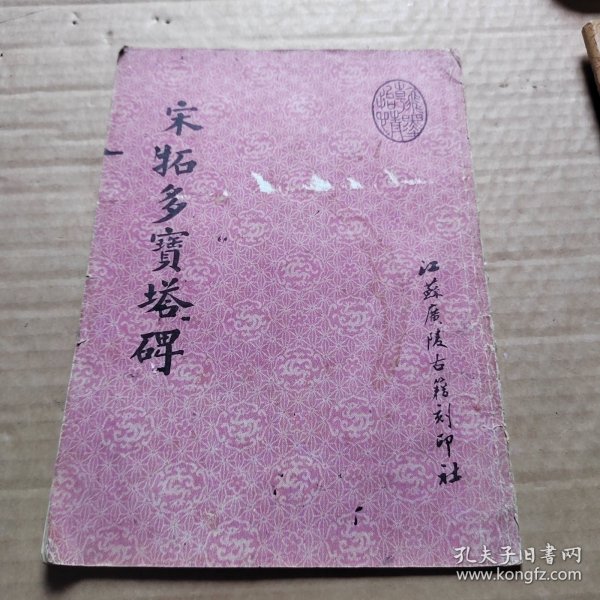 宋拓多寶塔碑
江蘇廣陵古籍刻印社
孔夫子旧書网
www.kongfz.com